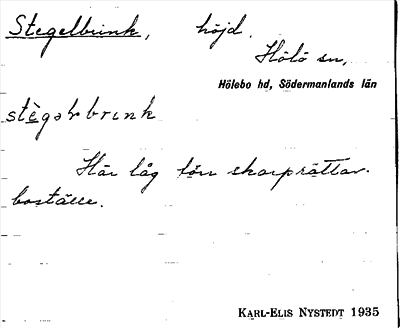 Stegelbrink, höjd.
Hölö sn,
Hölebo hd, Södermanlands län
stègəlbrink
Här låg förr skarprättar-
boställe.
KARL-ELIS NYSTEDT 1935